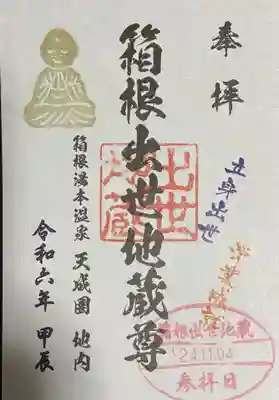 奉拝
立身出世
箱根出世地蔵尊
出世
地蔵
箱根湯本温泉 天成園 地内
令和六年 甲辰
箱根出世地蔵
'24.11.04
参拝日